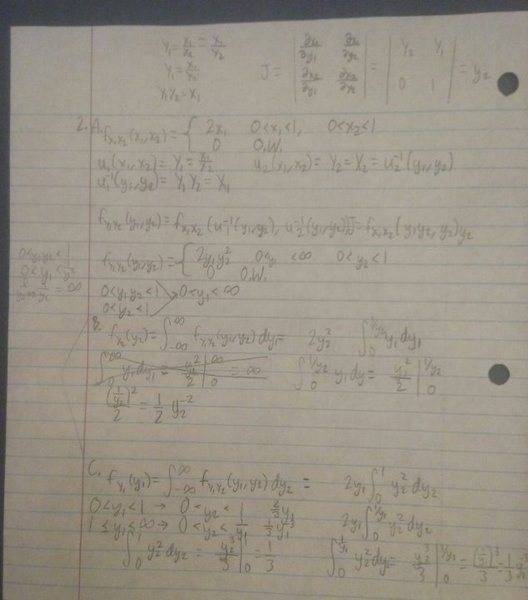 Y₁ = x₁/x₂ = x₁/y₂
Y₁ = x₁/y₂
Y₁Y₂ = X₁
J = | ∂x₁/∂y₁ ∂x₁/∂y₂ ; ∂x₂/∂y₁ ∂x₂/∂y₂ | = | Y₂ Y₁ ; 0 1 | = y₂
2. A. f_{x₁x₂}(x₁,x₂) = { 2x₁ 0<x₁<1, 0<x₂<1
0 O.W.
u₁(x₁,x₂) = Y₁ = x₁/x₂ u₂(x₁,x₂) = Y₂ = X₂ = u₂⁻¹(y₁,y₂)
u₁⁻¹(y₁,y₂) = Y₁Y₂ = X₁
f_{Y₁Y₂}(y₁,y₂) = f_{x₁x₂}(u₁⁻¹(y₁,y₂), u₂⁻¹(y₁,y₂))J = f_{x₁x₂}(y₁y₂, y₂)y₂
f_{Y₁Y₂}(y₁,y₂) = { 2y₁y₂² 0<y₁<∞ 0<y₂<1
0 O.W.
0<y₁y₂<1
0<y₁<1/y₂
= ∞
0<y₁y₂<1 > 0<y₁<∞
0<y₂<1
B. f_{Y₂}(y₂) = ∫_{-∞}^{∞} f_{Y₁Y₂}(y₁,y₂)dy₁ = 2y₂² ∫₀^{1/y₂} y₁dy₁
∫₀^∞ y₁dy₁ = y₁²/2 |₀^∞ = ∞ ∫₀^{1/y₂} y₁dy = y₁²/2 |₀^{1/y₂}
(1/y₂)²/2 = 1/2 y₂⁻²
C. f_{Y₁}(y₁) = ∫_{-∞}^{∞} f_{Y₁Y₂}(y₁,y₂)dy₂ = 2y₁∫₀¹ y₂²dy₂
0<y₁<1 → 0<y₂<1 2/3 y₁
1≤y₁≤∞ → 0<y₂<1/y₁ 2y₁∫₀^{1/y₁} y₂²dy₂
∫₀¹ y₂²dy₂ = y₂³/3 |₀¹ = 1/3 ∫₀^{1/y₁} y₂²dy₂ = y₂³/3 |₀^{1/y₁} = (1/y₁)³/3 = 1/3